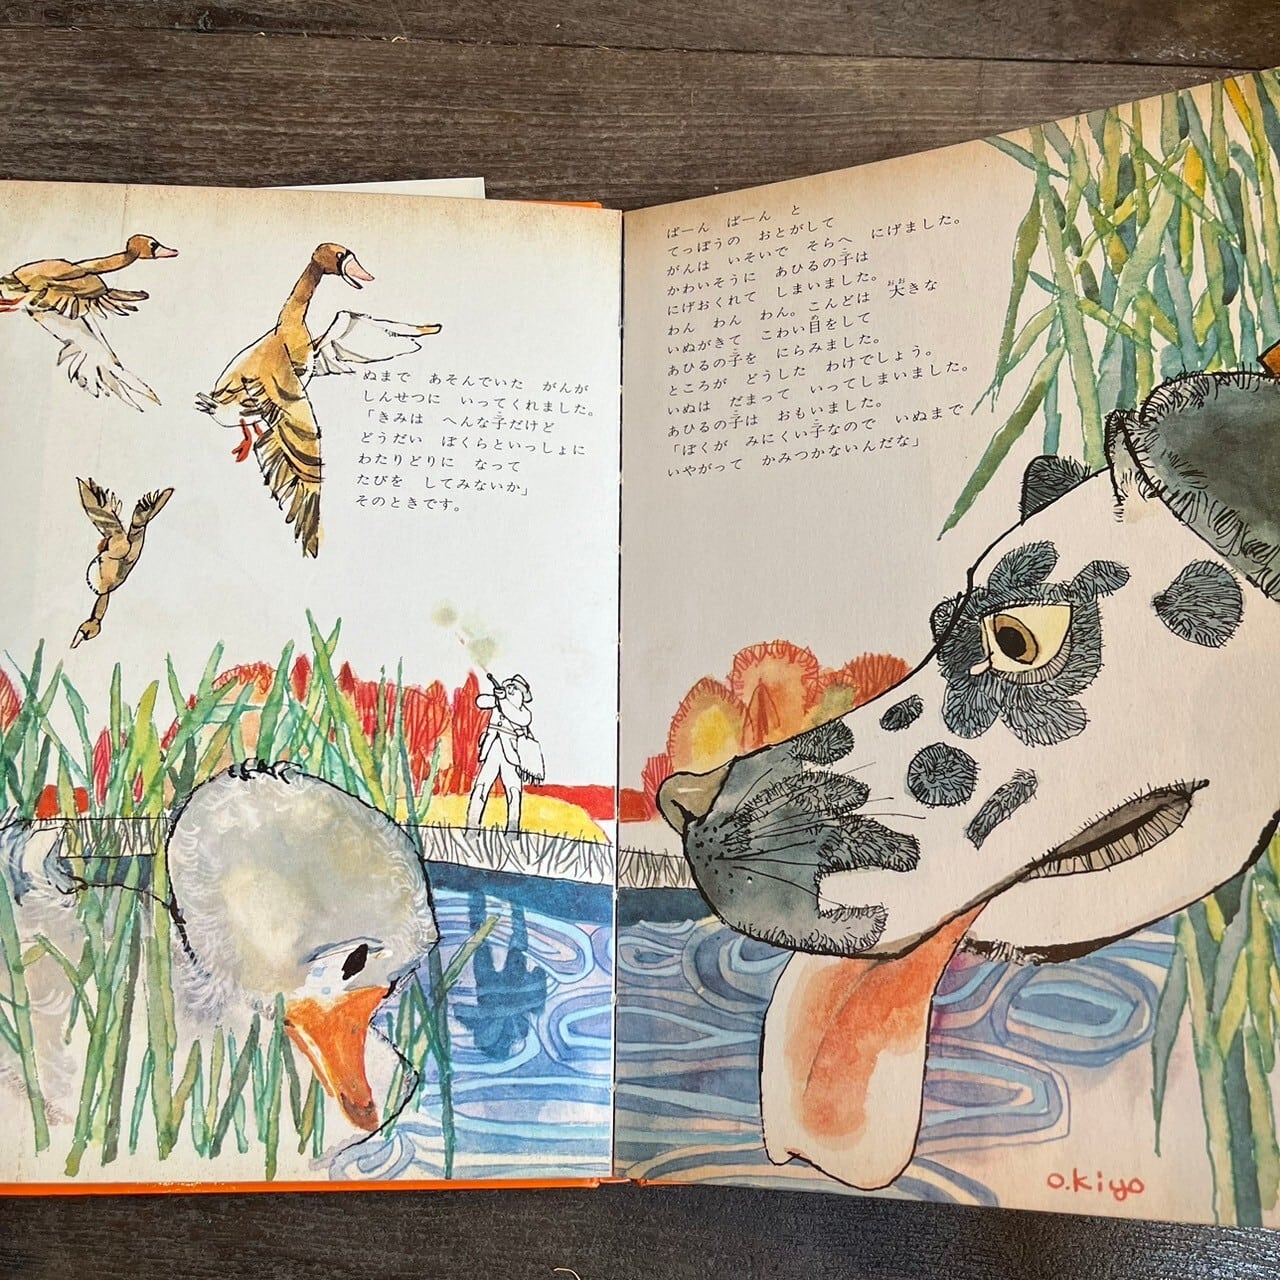 ぬまで　あそんでいた　がんが
しんせつに　いってくれました。
「きみは　へんな子だけど
どうだい　ぼくらといっしょに
わたりどりに　なって
たびを　してみないか」
そのときです。
ばーん　ばーん　と
てっぽうの　おとがして
がんは　いそいで　そらへ　にげました。
かわいそうに　あひるの子は
にげおくれて　しまいました。
わん　わん　わん。こんどは　大きな
いぬがきて　こわい目をして
あひるの子を　にらみました。
ところが　どうした　わけでしょう。
いぬは　だまって　いってしまいました。
あひるの子は　おもいました。
「ぼくが　みにくい子なので　いぬまで
いやがって　かみつかないんだな」
o.kiyo